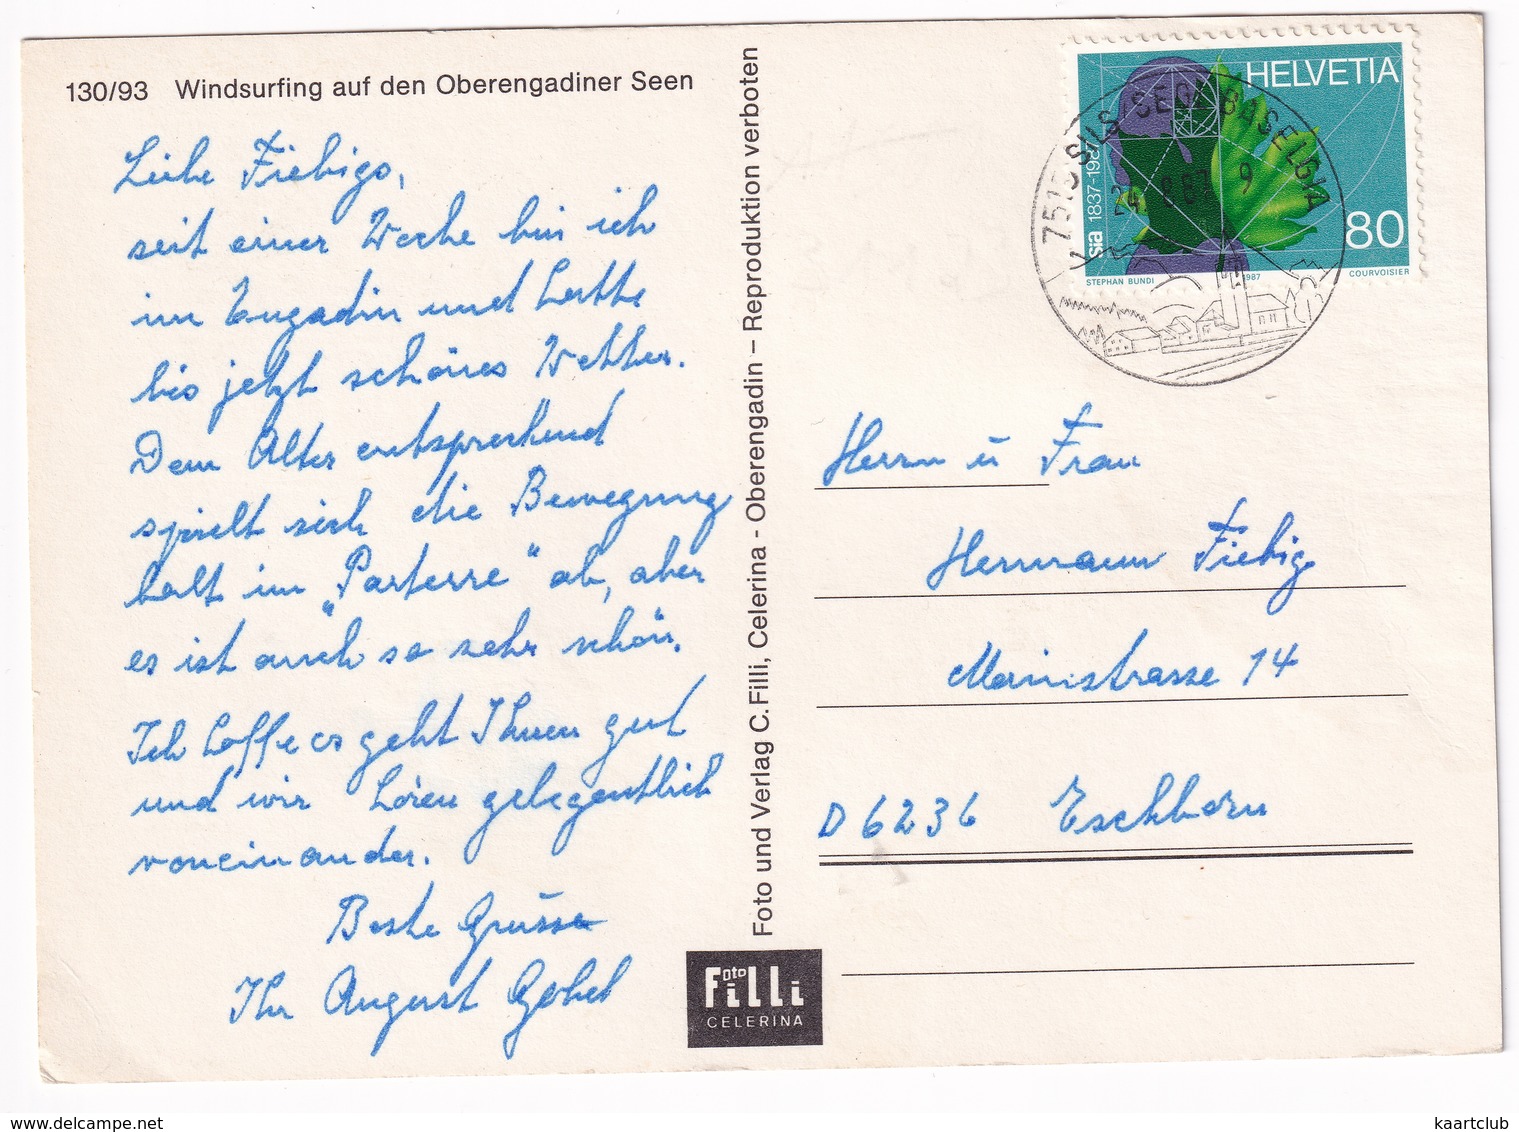 130/93 Windsurfing auf den Oberengadiner Seen
Liebe Fiebigs,
seit einer Woche bin ich
im Engadin und hatte
bis jetzt schönes Wetter.
Dem Alter entsprechend
spielt sich die Bewegung
halt im „Parterre“ ab, aber
es ist auch so sehr schön.
Ich hoffe es geht Ihnen gut
und wir hören gelegentlich
voneinander.
Beste Grüsse
Ihr August Gebel
Foto und Verlag C. Filli, Celerina - Oberengadin – Reproduktion verboten
Foto
Filli
CELERINA
HELVETIA
80
sia 1837-1987
STEPHAN BUNDI 1987 COURVOISIER
7515 SILS/SEGL BASELGIA
24. 8.87 9
Herrn u Frau
Hermann Fiebig
Mainstrasse 14
D 6236 Eschborn
www.delcampe.net
kaartclub